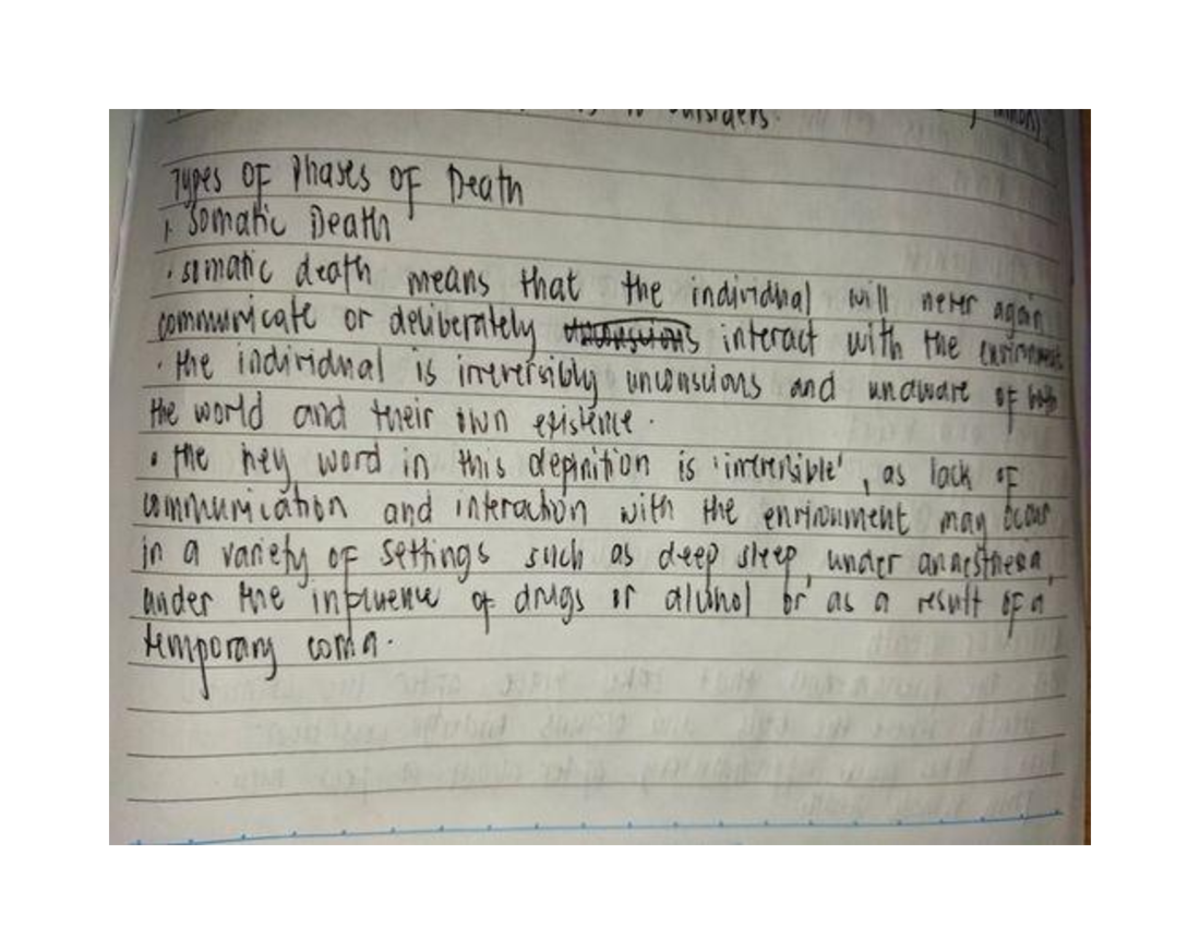 outsiders.
Types of Phases of Death
1. Somatic Death
· somatic death means that the individual will never again
communicate or deliberately interact with the environment
· the individual is irreversibly unconscious and unaware of both
the world and their own existence.
• the key word in this definition is 'irreversible', as lack of
communication and interaction with the environment may occur
in a variety of settings such as deep sleep, under anaesthesia,
under the influence of drugs or alcohol or as a result of a
temporary coma.